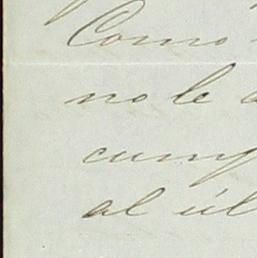 Como
no le
cump
al úl